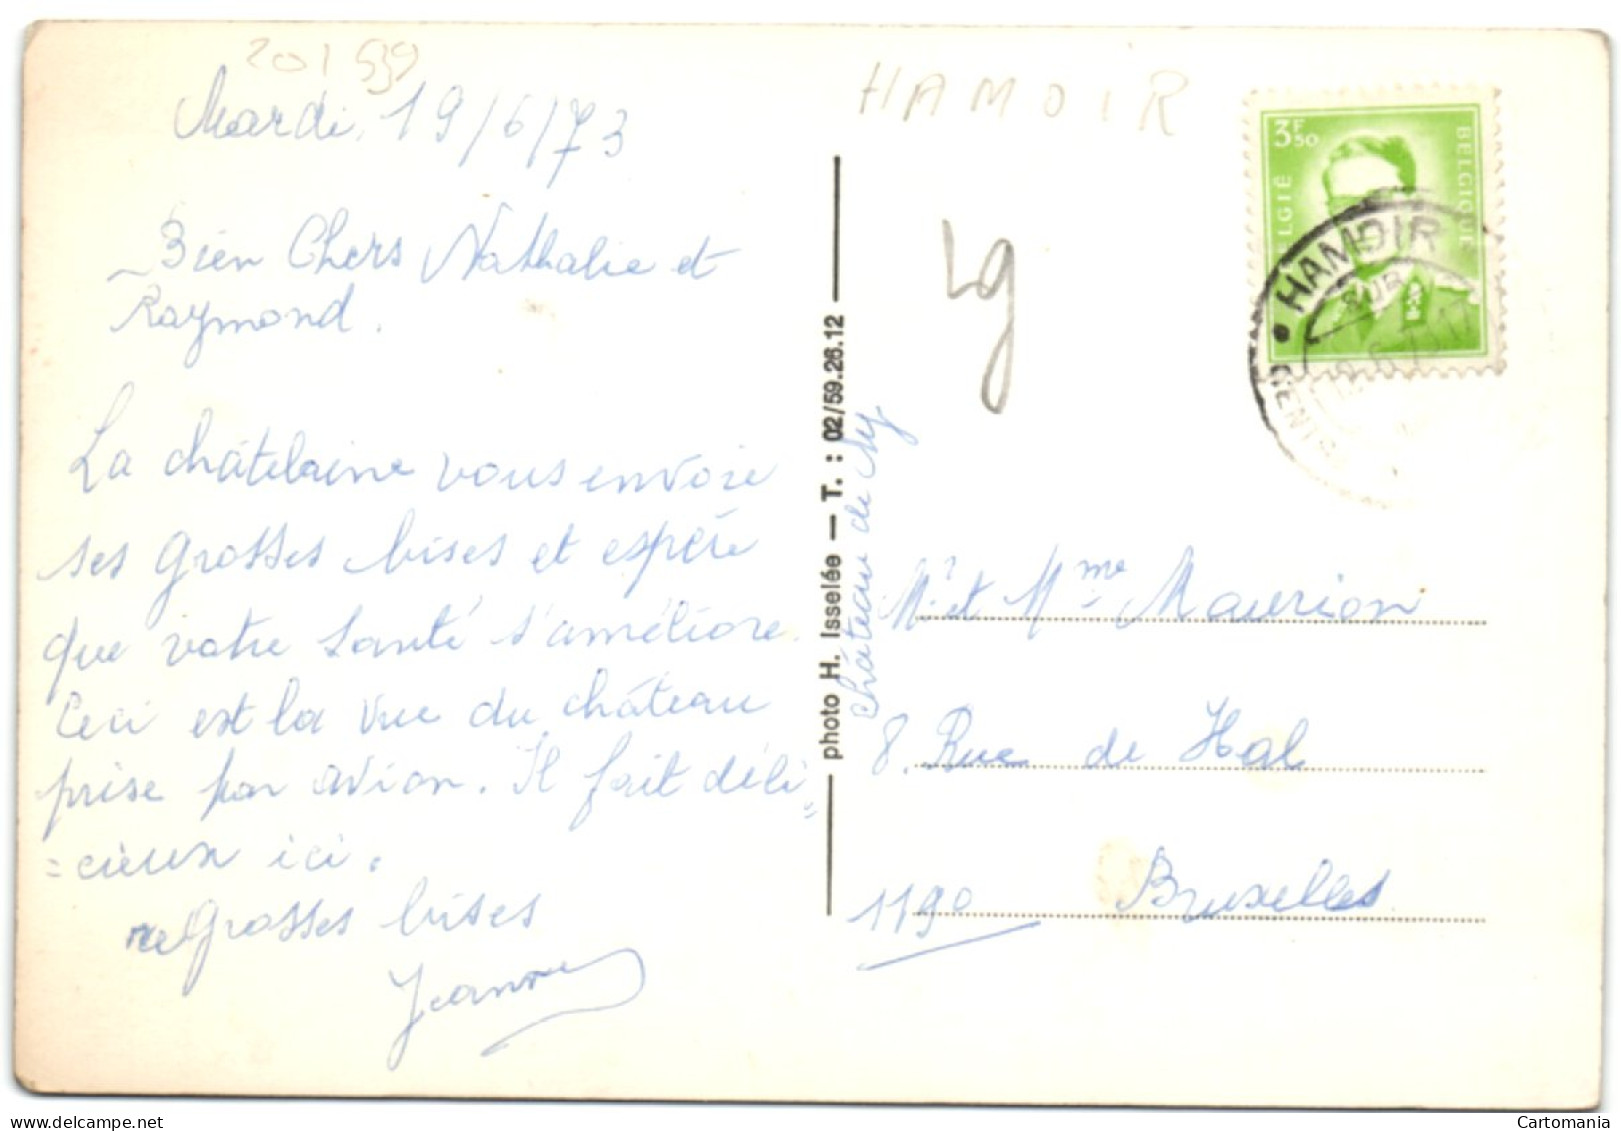 201 539
Mardi, 19/6/73
Bien Chers Nathalie et
Raymond.
La châtelaine vous envoie
ses grosses bises et espère
que votre santé s'améliore.
Ceci est la vue du château
prise par avion. Il fait déli=
=cieux ici.
re grosses bises
Jeanne
photo H. Isselée — T. : 02/59.26.12
château de
HAMOIR
Lg
3F50
BELGIQUE
BELGIË
HAMOIR
SUR
Mr et Mme Maurion
8. Rue de Hal
1190 Bruxelles
Cartomania